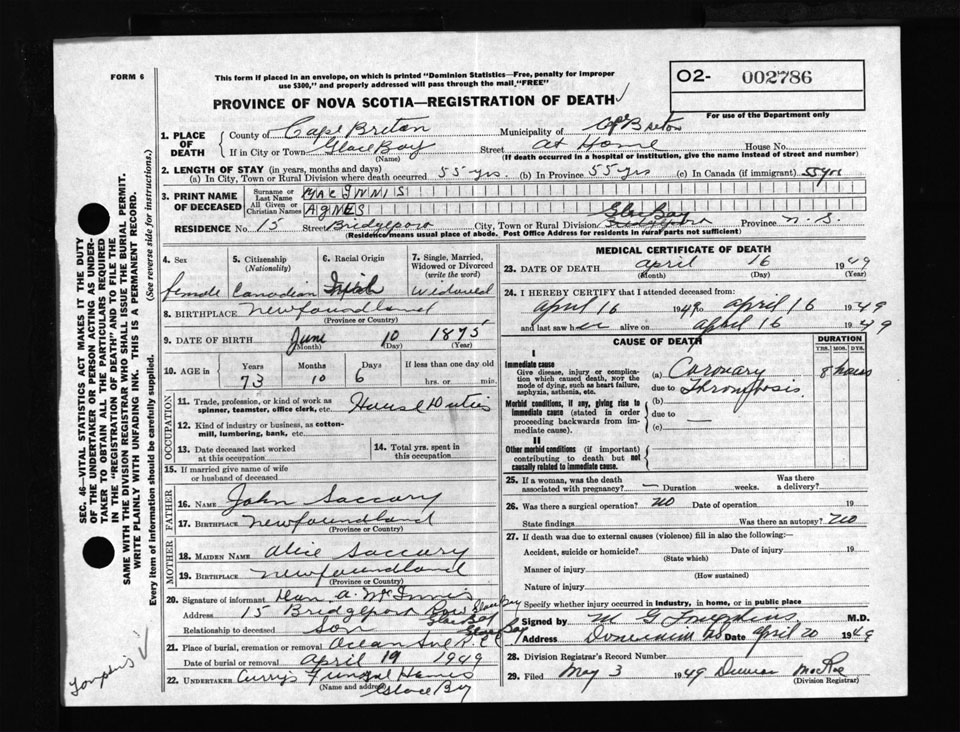 FORM 6
This form if placed in an envelope, on which is printed "Dominion Statistics—Free, penalty for improper
use $300," and properly addressed will pass through the mail, "FREE"
O2- 002786
For use of the Department only
PROVINCE OF NOVA SCOTIA—REGISTRATION OF DEATH
1. PLACE OF DEATH
County of Cape Breton Municipality of Cape Breton
If in City or Town Glace Bay Street At Home House No.
(Name) (If death occurred in a hospital or institution, give the name instead of street and number)
2. LENGTH OF STAY (in years, months and days)
(a) In City, Town or Rural Division where death occurred 55 yrs. (b) In Province 55 yrs (c) In Canada (if immigrant) 55 yrs
3. PRINT NAME OF DECEASED
Surname or Last Name MacINNIS
All Given or Christian Names AGNES
RESIDENCE No. 15 Street Bridgeport City, Town or Rural Division Glace Bay Bridgeport Province N.S.
(Residence means usual place of abode. Post Office Address for residents in rural parts not sufficient)
4. Sex
female
5. Citizenship (Nationality)
Canadian
6. Racial Origin
Irish
7. Single, Married, Widowed or Divorced (write the word)
Widowed
8. BIRTHPLACE Newfoundland
(Province or Country)
9. DATE OF BIRTH June 10 1875
(Month) (Day) (Year)
10. AGE in Years Months Days If less than one day old
73 10 6 hrs. or min.
OCCUPATION
11. Trade, profession, or kind of work as
spinner, teamster, office clerk, etc. House Duties
12. Kind of industry or business, as cotton-
mill, lumbering, bank, etc.
13. Date deceased last worked
at this occupation
14. Total yrs. spent in
this occupation
15. If married give name of wife
or husband of deceased
FATHER
16. NAME John Saccary
17. BIRTHPLACE Newfoundland
(Province or Country)
MOTHER
18. MAIDEN NAME Alice Saccary
19. BIRTHPLACE Newfoundland
(Province or Country)
20. Signature of informant Dan A. McInnis
Address 15 Bridgeport Row Glace Bay
Glace Bay
Relationship to deceased Son Glace Bay
21. Place of burial, cremation or removal Ocean
Date of burial or removal April 19 1949
22. UNDERTAKER Currys Funeral Homes
(Name and address) Glace Bay
MEDICAL CERTIFICATE OF DEATH
23. DATE OF DEATH April 16 1949
(Month) (Day) (Year)
24. I HEREBY CERTIFY that I attended deceased from:
April 16 1949 to April 16 1949
and last saw her alive on April 16 1949
CAUSE OF DEATH
DURATION
YRS. MOS. DYS.
I
Immediate cause
Give disease, injury or compli-
cation which caused death, NOT the
mode of dying, such as heart failure,
asphyxia, asthenia, etc.
(a) Coronary 8 hours
due to Thrombosis
Morbid conditions, if any, giving rise to
immediate cause (stated in order
proceeding backwards from im-
mediate cause).
(b)
due to —
(c)
II
Other morbid conditions (if important)
contributing to death but not
causally related to immediate cause.
25. If a woman, was the death
associated with pregnancy? — Duration weeks. Was there
a delivery?
26. Was there a surgical operation? No Date of operation 19
State findings Was there an autopsy? No
27. If death was due to external causes (violence) fill in also the following:—
Accident, suicide or homicide? Date of injury 19
(State which)
Manner of injury
(How sustained)
Nature of injury
Specify whether injury occurred in industry, in home, or in public place
Signed by M G Tompkins M.D.
Address Dominion NS Date April 20 1949
28. Division Registrar's Record Number
29. Filed May 3 1949 Duncan MacRae
(Division Registrar)
SEC. 46—VITAL STATISTICS ACT MAKES IT THE DUTY
OF THE UNDERTAKER OR PERSON ACTING AS UNDER-
TAKER TO OBTAIN ALL THE PARTICULARS REQUIRED
IN THE "REGISTRATION OF DEATH" AND TO FILE THE
SAME WITH THE DIVISION REGISTRAR WHO SHALL ISSUE THE BURIAL PERMIT.
WRITE PLAINLY WITH UNFADING INK. THIS IS A PERMANENT RECORD.
Every item of information should be carefully supplied. (See reverse side for instructions.)
Tompkins